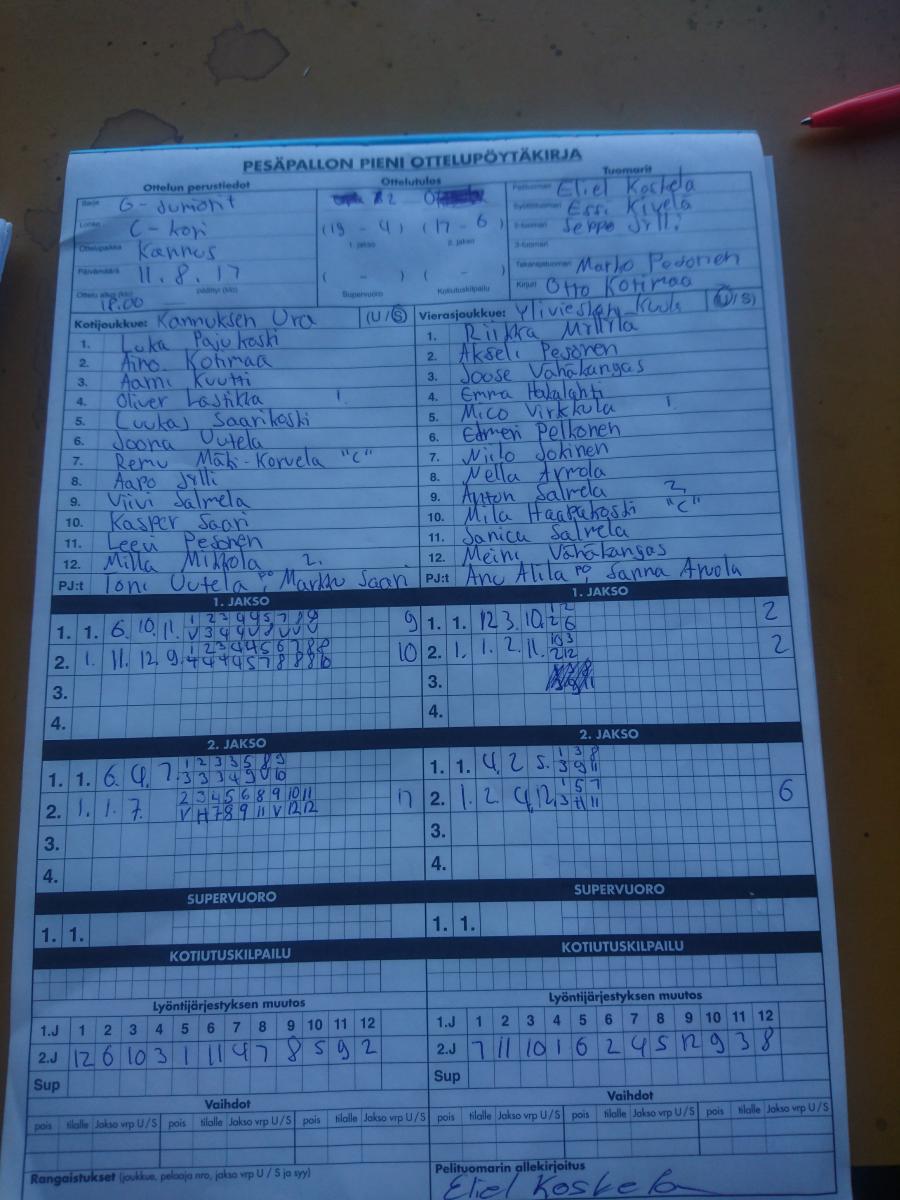 PESÄPALLON PIENI OTTELUPÖYTÄKIRJA
Ottelun perustiedot Ottelutulos Tuomarit
Sarja G-Juniorit
Lohko C-kori
Ottelupaikka Kannus
Päivämäärä 11.8.17
Ottelu alkoi (klo) 18.00 päättyi (klo)
(19 - 4) (17 - 6)
1. jakso 2. jakso
( - ) ( - )
Supervuoro Kotiutuskilpailu
Pelituomari Eliel Koskela
Syöttötuomari Essi Kivelä
2-tuomari Seppo Jylli
3-tuomari
Takarajatuomari Marko Pesonen
Kirjuri Otto Kotimaa
Kotijoukkue: Kannuksen Ura (U/S)
1. Luka Pajukoski
2. Aino Kotimaa
3. Aamu Kuutti
4. Oliver Lastikka 1.
5. Luukas Saarikoski
6. Joona Uutela
7. Remu Mäki-Korvela "C"
8. Aapo Jylli
9. Viivi Salmela
10. Kasper Saari
11. Leevi Pesonen
12. Milla Mikkola 2.
PJ:t Toni Uutela PO Markku Saari
Vierasjoukkue: Ylivieskan Kuula (U/S)
1. Riikka Mittila
2. Akseli Pesonen
3. Joose Vähäkangas
4. Emma Hakalahti
5. Mico Virkkula 1.
6. Elmeri Pelkonen
7. Niilo Jokinen
8. Nella Arvola
9. Anton Salmela 2.
10. Mila Haapakoski "C"
11. Janica Salmela
12. Meini Vähäkangas
PJ:t Anu Alila PO, Sanna Arvola
1. JAKSO
1. 1. 6. 10. 11. 9
2. 1. 11. 12. 9. 10
3.
4.
1. JAKSO
1. 1. 12 3. 10. 2
2. 1. 1. 2. 11. 2
3.
4.
2. JAKSO
1. 1. 6. 4. 7.
2. 1. 1. 7. 17
3.
4.
2. JAKSO
1. 1. 4. 2 5.
2. 1. 2 4. 12. 6
3.
4.
SUPERVUORO
1. 1.
SUPERVUORO
1. 1.
KOTIUTUSKILPAILU
KOTIUTUSKILPAILU
Lyöntijärjestyksen muutos
1.J 1 2 3 4 5 6 7 8 9 10 11 12
2.J 12 6 10 3 1 11 4 7 8 5 9 2
Sup
Lyöntijärjestyksen muutos
1.J 1 2 3 4 5 6 7 8 9 10 11 12
2.J 7 11 10 1 6 2 4 5 12 9 3 8
Sup
Vaihdot
pois tilalle Jakso vrp U/S pois tilalle Jakso vrp U/S pois tilalle Jakso vrp U/S
Vaihdot
pois tilalle Jakso vrp U/S pois tilalle Jakso vrp U/S pois tilalle Jakso vrp U/S
Rangaistukset (joukkue, pelaaja nro, jakso vrp U / S ja syy)
Pelituomarin allekirjoitus
Eliel Koskela